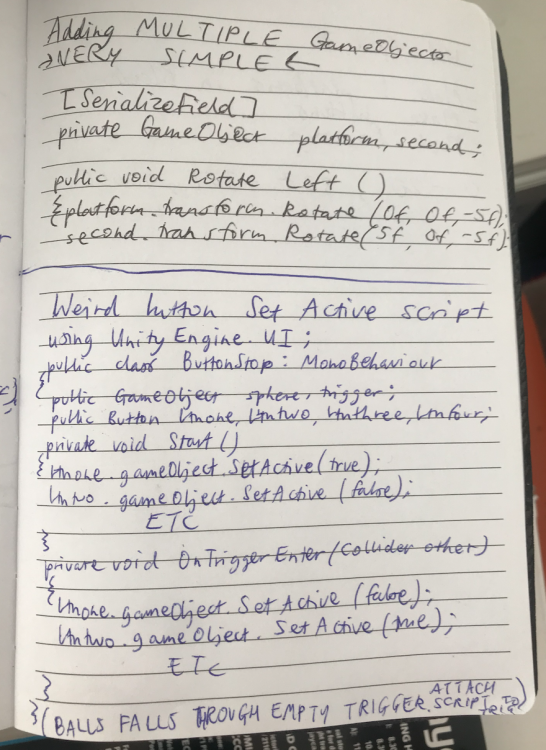 Adding MULTIPLE GameObjects
→ VERY SIMPLE ←
[SerializeField]
private GameObject platform, second;
public void Rotate Left ()
{platform.transform.Rotate (0f, 0f, -5f);
second.transform.Rotate(5f, 0f, -5f);
Weird button Set Active script
using Unity Engine.UI;
public class ButtonStop : MonoBehaviour
{
public GameObject sphere, trigger;
public Button btnone, btntwo, btnthree, btnfour;
private void Start()
{btnone.gameObject.SetActive(true);
btntwo.gameObject.SetActive (false);
ETC
}
private void OnTriggerEnter (Collider other)
{
btnone.gameObject.Set Active (false);
btntwo.gameObject.Set Active (true);
ETC
}
}(BALLS FALLS THROUGH EMPTY TRIGGER. ATTACH SCRIPT TO TRIG)